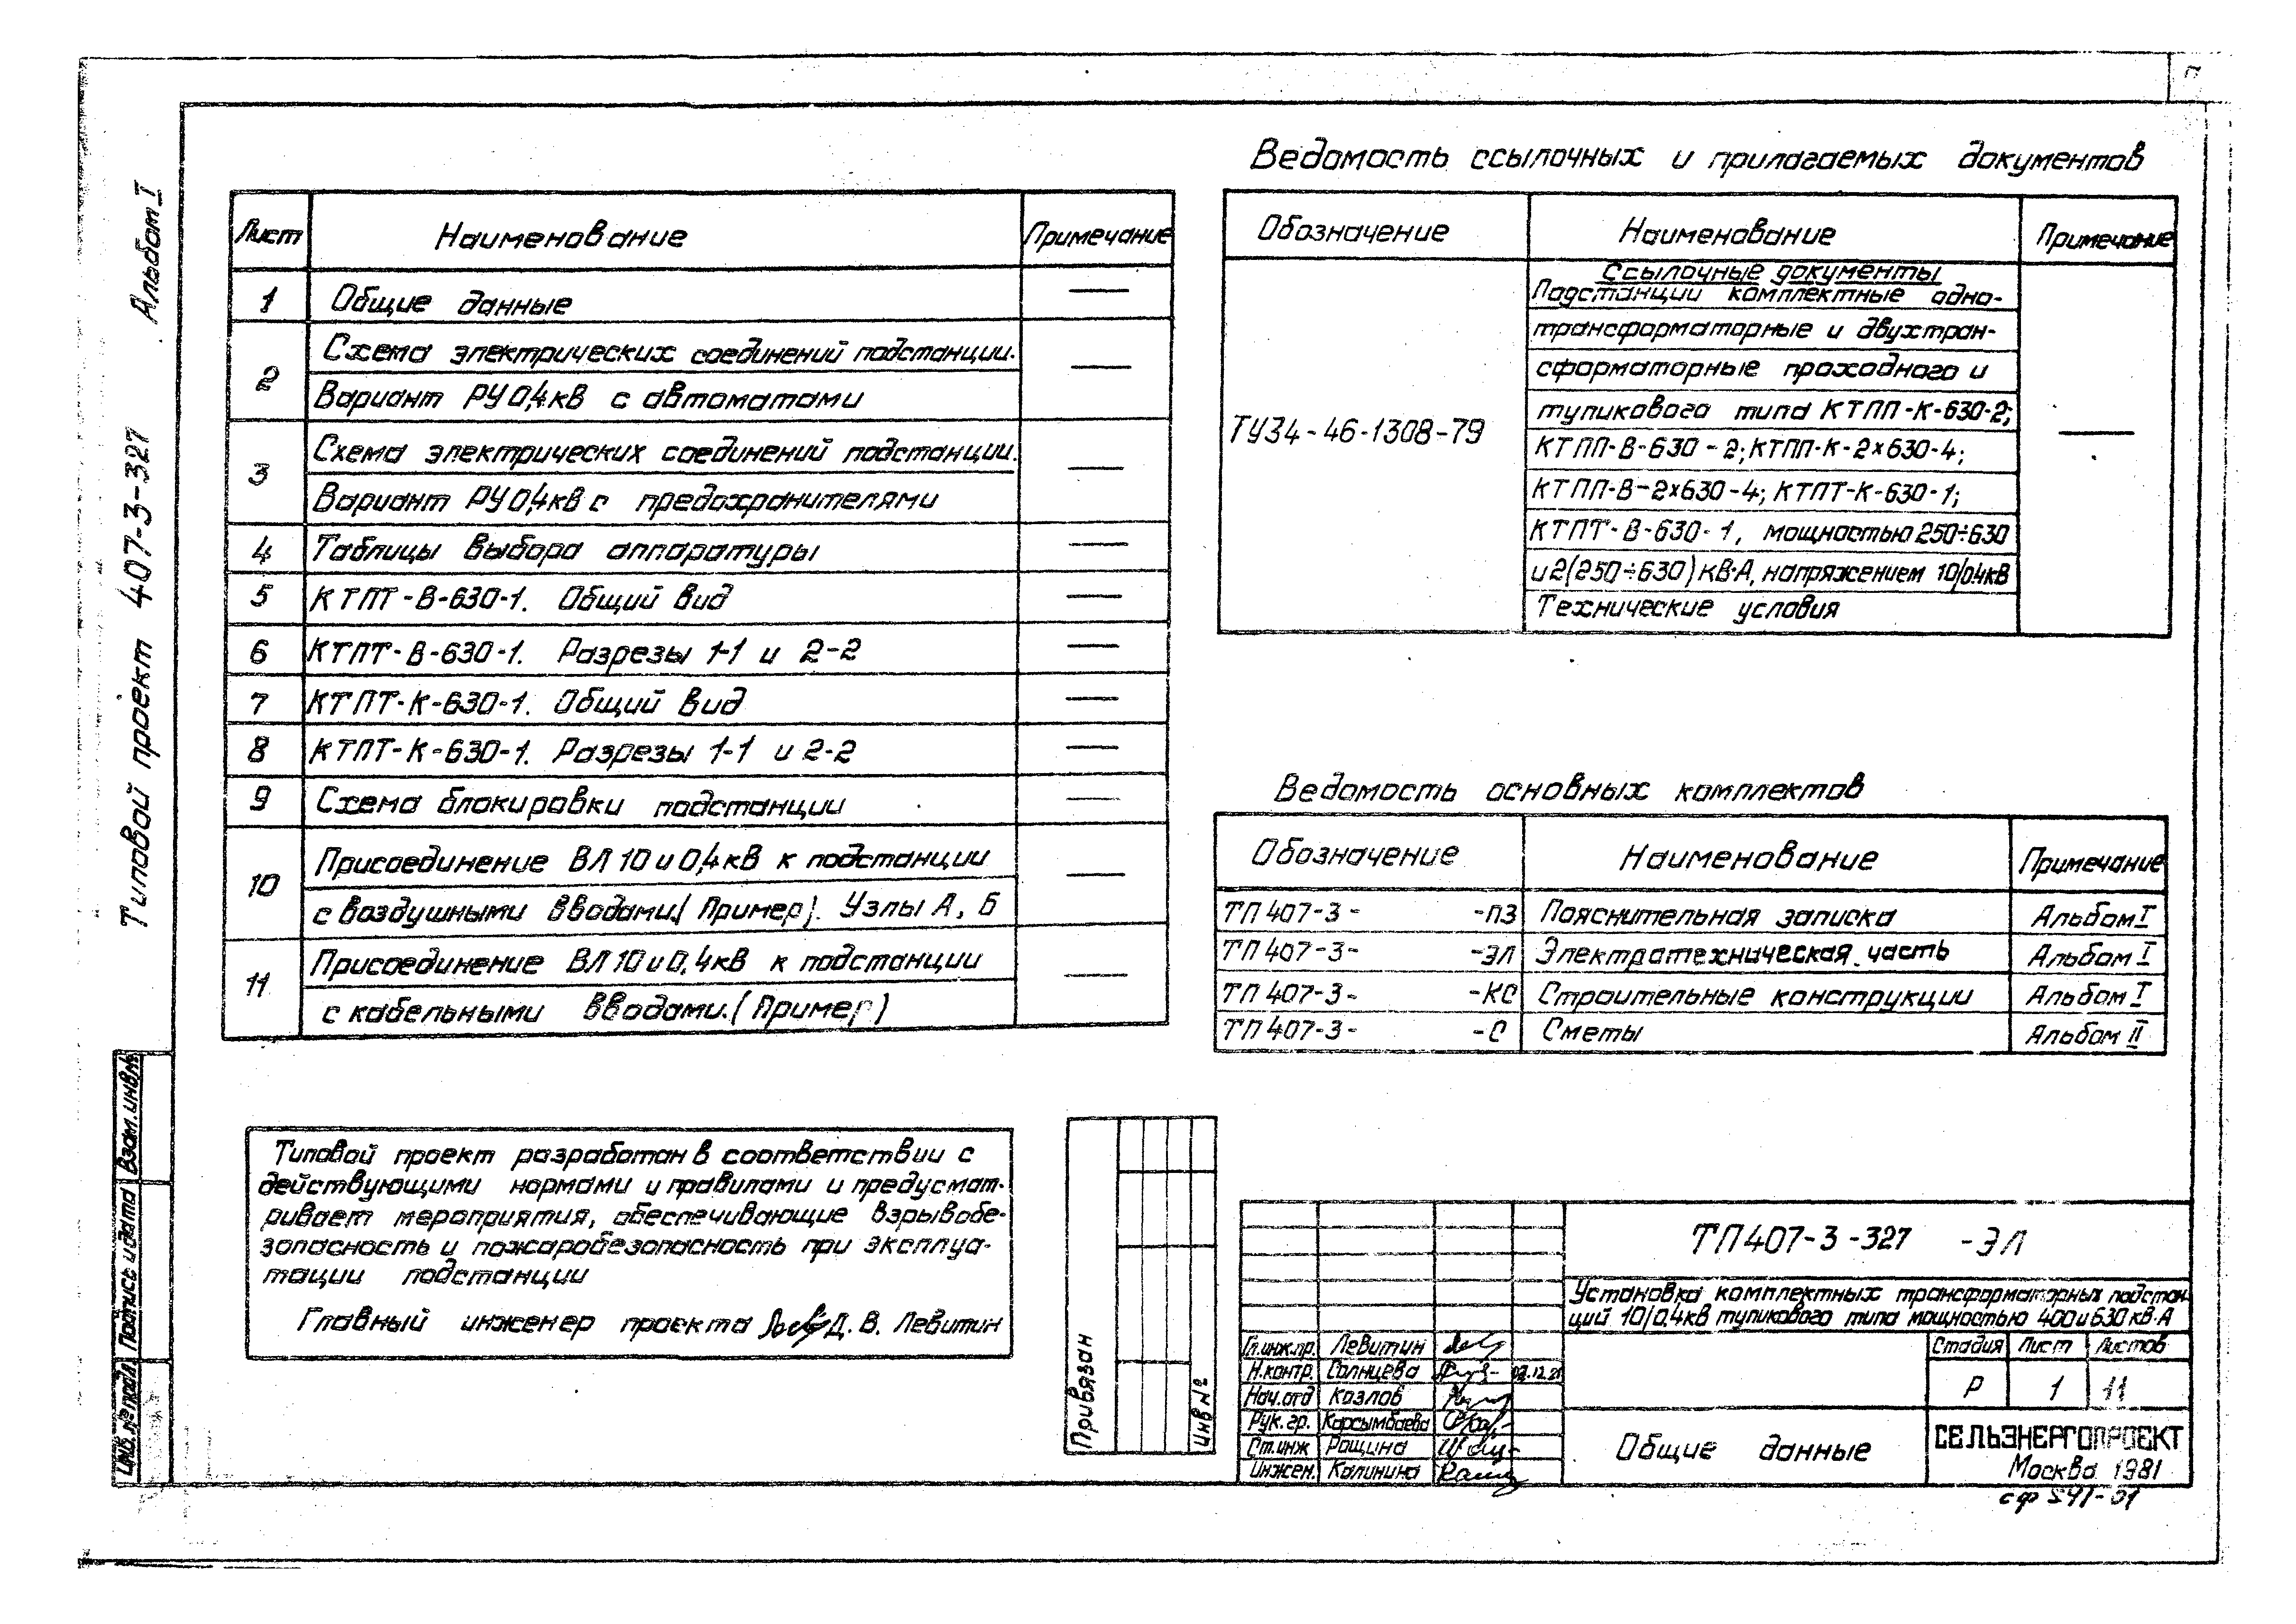 Типовой проект 407-3-327 Альбом I
Лист Наименование Примечание
1 Общие данные —
2 Схема электрических соединений подстанции.
Вариант РУ 0,4кВ с автоматами —
3 Схема электрических соединений подстанции.
Вариант РУ 0,4кВ с предохранителями —
4 Таблицы выбора аппаратуры —
5 КТПТ-В-630-1. Общий вид —
6 КТПТ-В-630-1. Разрезы 1-1 и 2-2 —
7 КТПТ-К-630-1. Общий вид —
8 КТПТ-К-630-1. Разрезы 1-1 и 2-2 —
9 Схема блокировки подстанции —
10 Присоединение ВЛ 10 и 0,4кВ к подстанции
с воздушными вводами.(Пример). Узлы А, Б —
11 Присоединение ВЛ 10 и 0,4кВ к подстанции
с кабельными вводами.(Пример) —
Ведомость ссылочных и прилагаемых документов
Обозначение Наименование Примечание
Ссылочные документы
Подстанции комплектные одно-
трансформаторные и двухтран-
сформаторные проходного и
тупикового типа КТПП-К-630-2;
ТУ34-46-1308-79 КТПП-В-630-2; КТПП-К-2×630-4; —
КТПП-В-2×630-4; КТПТ-К-630-1;
КТПТ-В-630-1, мощностью 250÷630
и 2(250÷630) кВ·А, напряжением 10/0,4кВ
Технические условия
Ведомость основных комплектов
Обозначение Наименование Примечание
ТП 407-3- -ПЗ Пояснительная записка Альбом I
ТП 407-3- -ЭЛ Электротехническая часть Альбом I
ТП 407-3- -КС Строительные конструкции Альбом I
ТП 407-3- -С Сметы Альбом II
Типовой проект разработан в соответствии с
действующими нормами и правилами и предусмат-
ривает мероприятия, обеспечивающие взрывобе-
зопасность и пожаробезопасность при эксплуа-
тации подстанции
Главный инженер проекта Д. В. Левитин
Взам. инв.№
Подпись и дата
Инв. № подл.
Привязан
Инв №
ТП 407-3-327 -ЭЛ
Установка комплектных трансформаторных подстан-
ций 10/0,4кВ тупикового типа мощностью 400 и 630 кВ·А
Гл.инж.пр. Левитин
Н.контр. Солнцева
Нач.отд Козлов
Рук. гр. Карсымбаева
Ст.инж Рощина
Инжен. Калинина
Стадия Лист Листов
Р 1 11
Общие данные
СЕЛЬЭНЕРГОПРОЕКТ
Москва 1981
сф 541-01